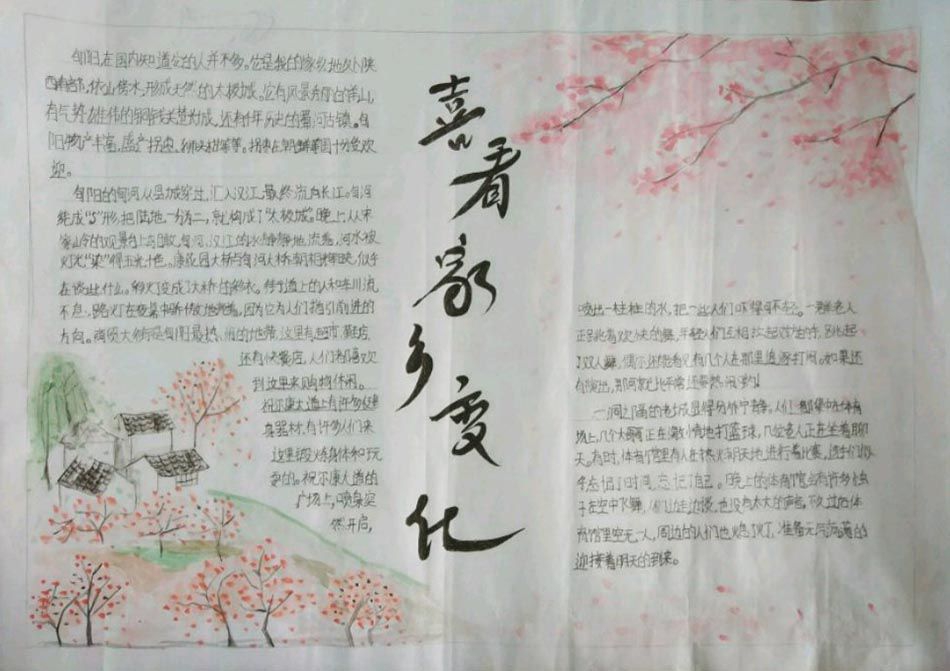 喜看家乡变化
旬阳在国内知道它的人并不多。它是我的家乡,地处陕
西南部,依山傍水,形成天然的太极城。它有风景秀丽的
有气势雄伟的 还有千年历史的蜀河古镇。旬
阳物产丰富,盛产拐枣、 等等。拐枣在 十分受欢
迎。
旬阳的旬河从县城穿过,汇入汉江,最终流向长江。旬河
绕成"S"形,把陆地一分为二,就构成了"太极城"。晚上,从宋
家岭的观景台上鸟瞰,旬河、汉江的水静静地流着,河水被
灯光"染"得五光十色。 花园大桥与旬河大桥 相辉映,似乎
在谈些什么。 灯变成了大桥的 。 道上的人和车川流
不息,路灯在夜幕中 地 着,因为它为人们指引前进的
方向。商贸大 是旬阳最热闹的地带,这里有超市、鞋店,
还有快餐店,人们都喜欢
到这里来购物休闲。
祝尔康大道上有许多健
身器材,有许多人们来
这里锻炼身体和玩
耍的。祝尔康大道的
广场上,喷泉突
然开启,
喷出一柱柱的水,把一些人们吓得 不轻。一群老人
正跳着欢快的舞,年轻人们互相 起对方的手,跳起
了双人舞,偶尔还能看见有几个人在那里追逐打闹。如果还
有演出,那可就比平常还要热闹的!
一河之隔的老城显得分外宁静。人们都集中在体育
场上,几个大哥哥正在激情地打篮球,几位老人正在坐着聊
天。有时,体育馆里有人在热火朝天地进行着比赛,选手们似
乎忘记了时间,忘记了自己。晚上的体育馆会有许多虫
子在空中飞舞,人们边走边谈,也没有太大的声音。夜过后,体
育馆里空无一人,周边的人们也熄了灯,准备元气满满的
迎接着明天的到来。